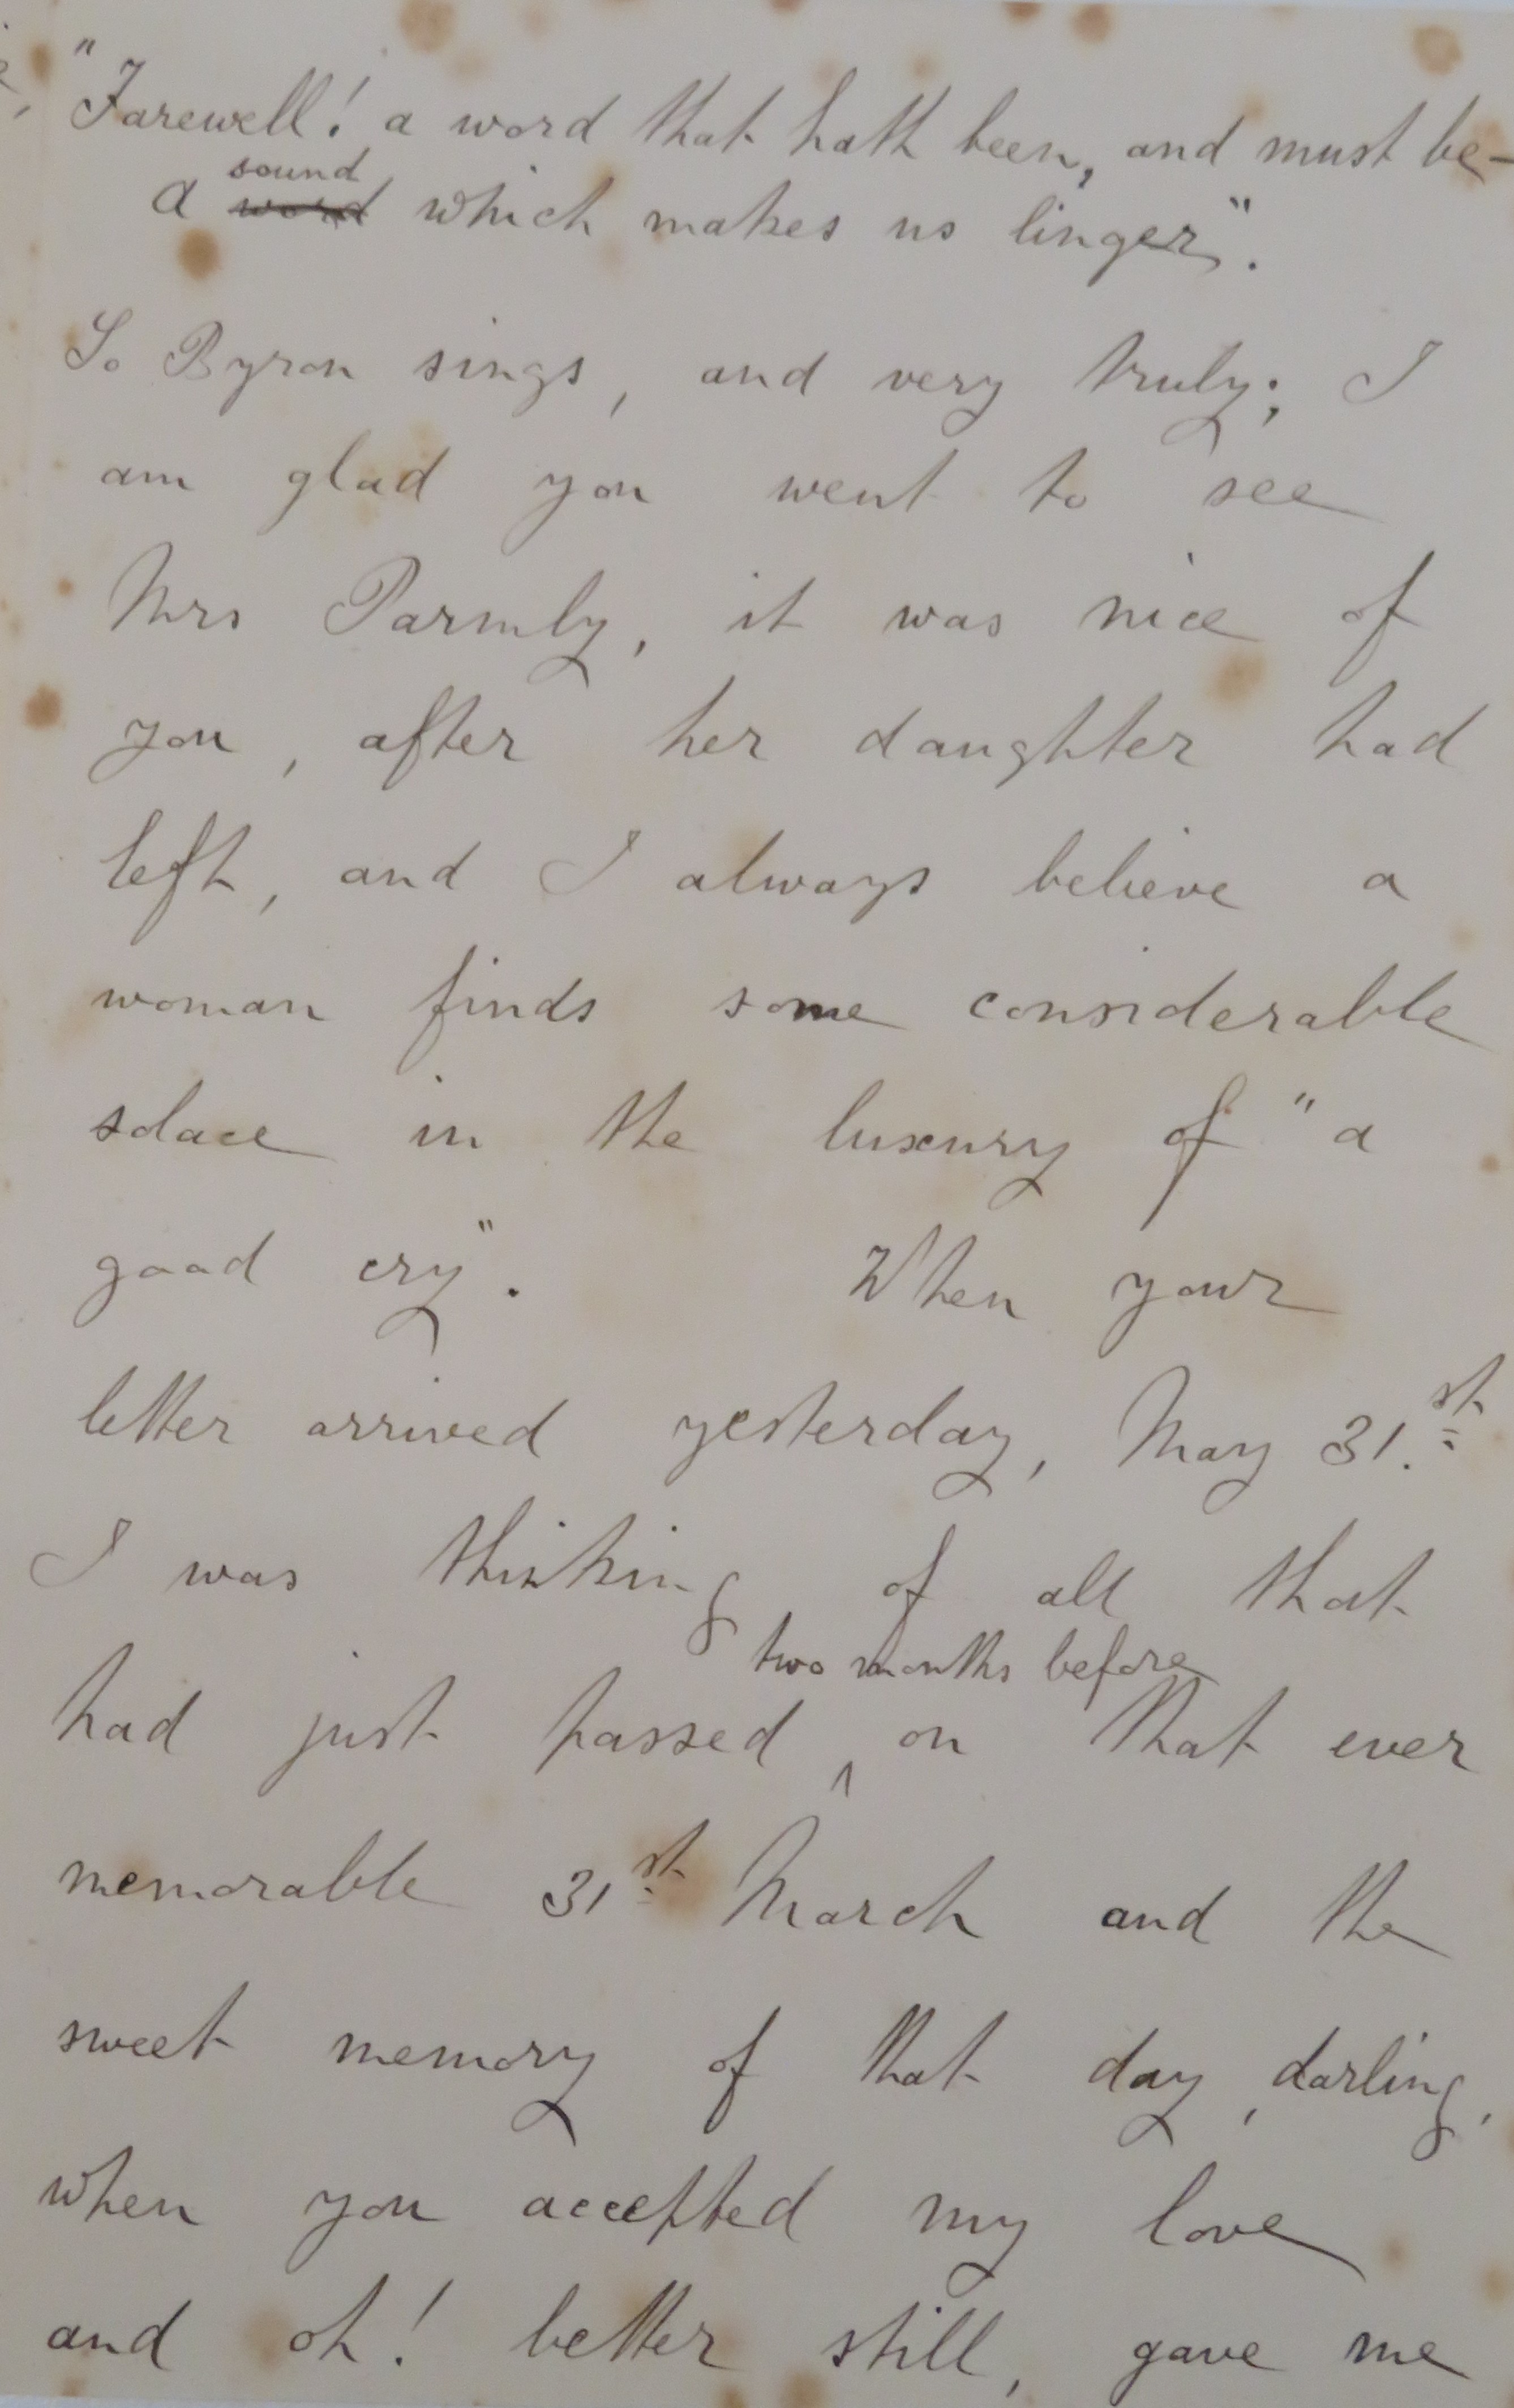 "Farewell! a word that hath been, and must be-
sound
a word which makes us linger".
So Byron sings, and very truly; I
am glad you went to see
Mrs Parmly, it was nice of
you, after her daughter had
left, and I always believe a
woman finds some considerable
solace in the luxury of "a
good cry". When your
letter arrived yesterday, May 31.st
I was thinking of all that
two months before
had just passed ^ on that ever
memorable 31st March and the
sweet memory of that day, darling,
when you accepted my love
and oh! better still, gave me